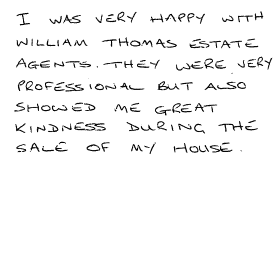 I WAS VERY HAPPY WITH
WILLIAM THOMAS ESTATE
AGENTS. THEY WERE VERY
PROFESSIONAL BUT ALSO
SHOWED ME GREAT
KINDNESS DURING THE
SALE OF MY HOUSE.